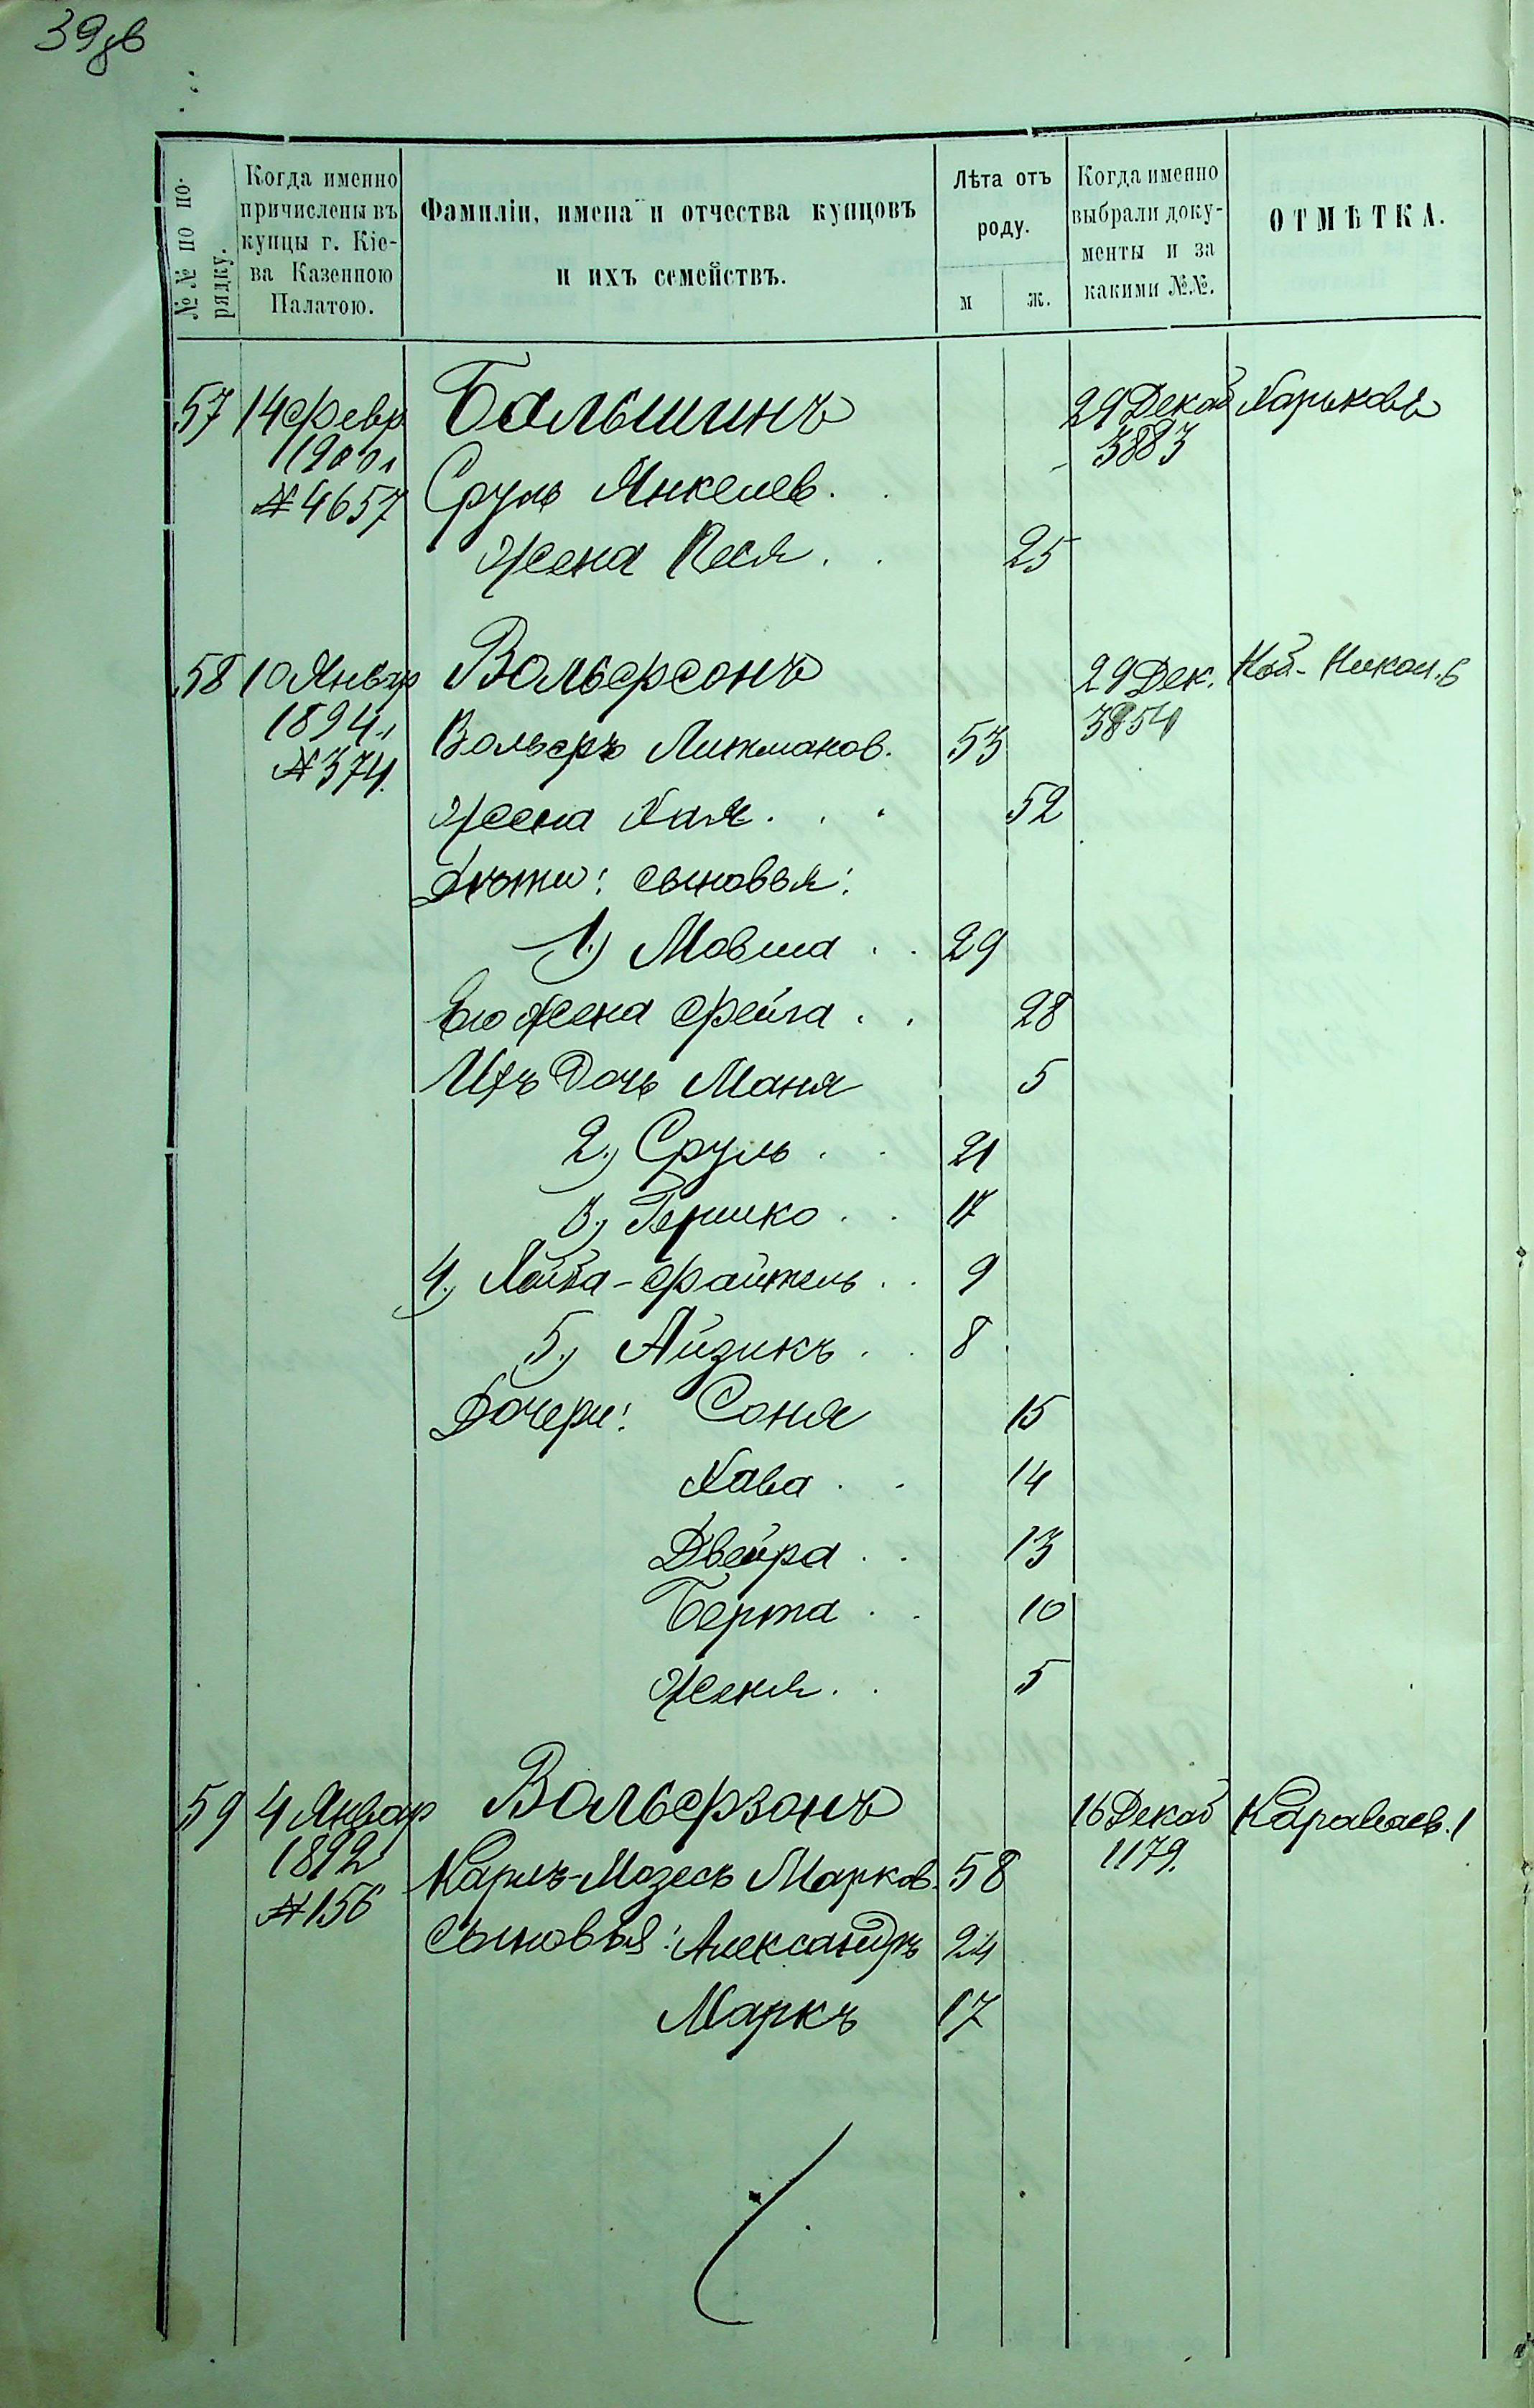 39об
№№ по по-
рядку.
Когда именно
причислены въ
купцы г. Кіе-
ва Казенною
Палатою.
Фамиліи, имена и отчества купцовъ
и ихъ семействъ.
Лѣта отъ
роду.
м ж.
Когда именно
выбрали доку-
менты и за
какими №№.
ОТМѢТКА.
57 14 Февр Балышинъ 29 Декаб Харьковъ
1900 г 3883
№ 4657 Сруль Янкелев.
Жена Песя 25
58 10 Январ Вольфсонъ 29 Дек.
1894 г Вольфъ Липманов. 53 3854
№ 374.
Жена Хая 52
Дѣти: сыновья:
1.) Мовша 29
Его жена Фейга 28
Ихъ дочь Маня 5
2.) Сруль 21
3.) Гершко 17
4.) Лейба-Файтель 9
5.) Айзикъ 8
Дочери: Соня 15
Хава 14
Двейра 13
Берта 10
Женя 5
59 4 Январ Вольфзонъ 16 Декаб Караваев. 1
1892 Карлъ-Мозесъ Марков. 58 1179.
№ 156
Сыновья: Александръ 24
Маркъ 17